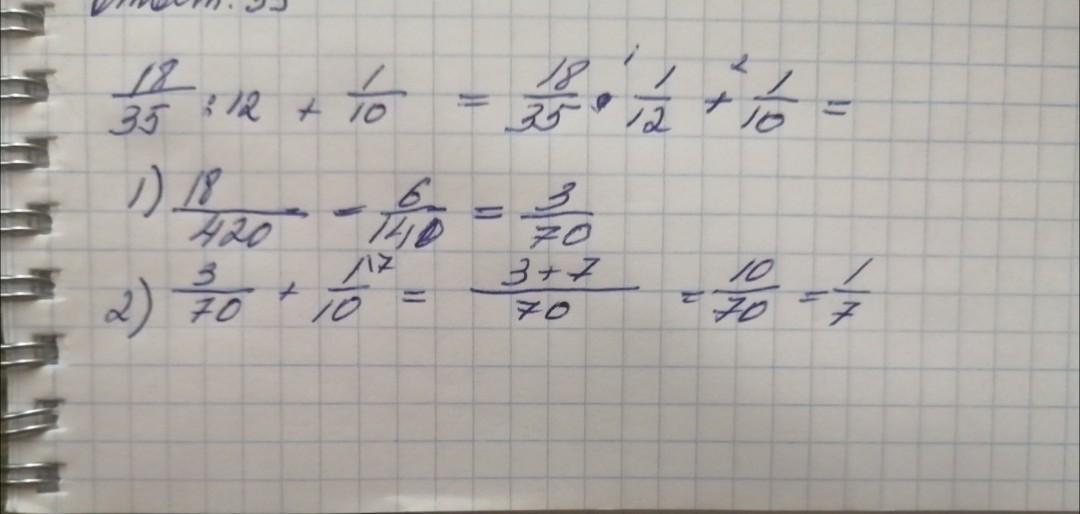 Ответ: 35
18/35 : 12 + 1/10 = 18/35 · 1/12 + 1/10 =
1) 18/420 = 6/140 = 3/70
2) 3/70 + 1/10 \7 = 3+7/70 = 10/70 = 1/7